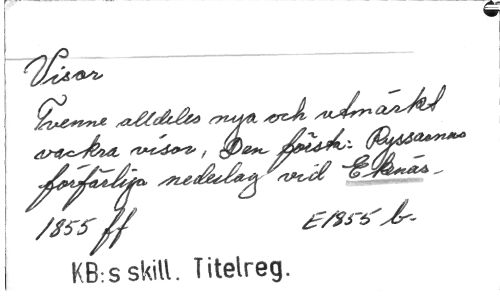 Visor
Tvenne alldeles nya och utmärkt
vackra visor, Den första: Ryssarnas
förfärliga nederlag vid Ekenäs.
1855 ff E1855 b.
KB:s skill. Titelreg.